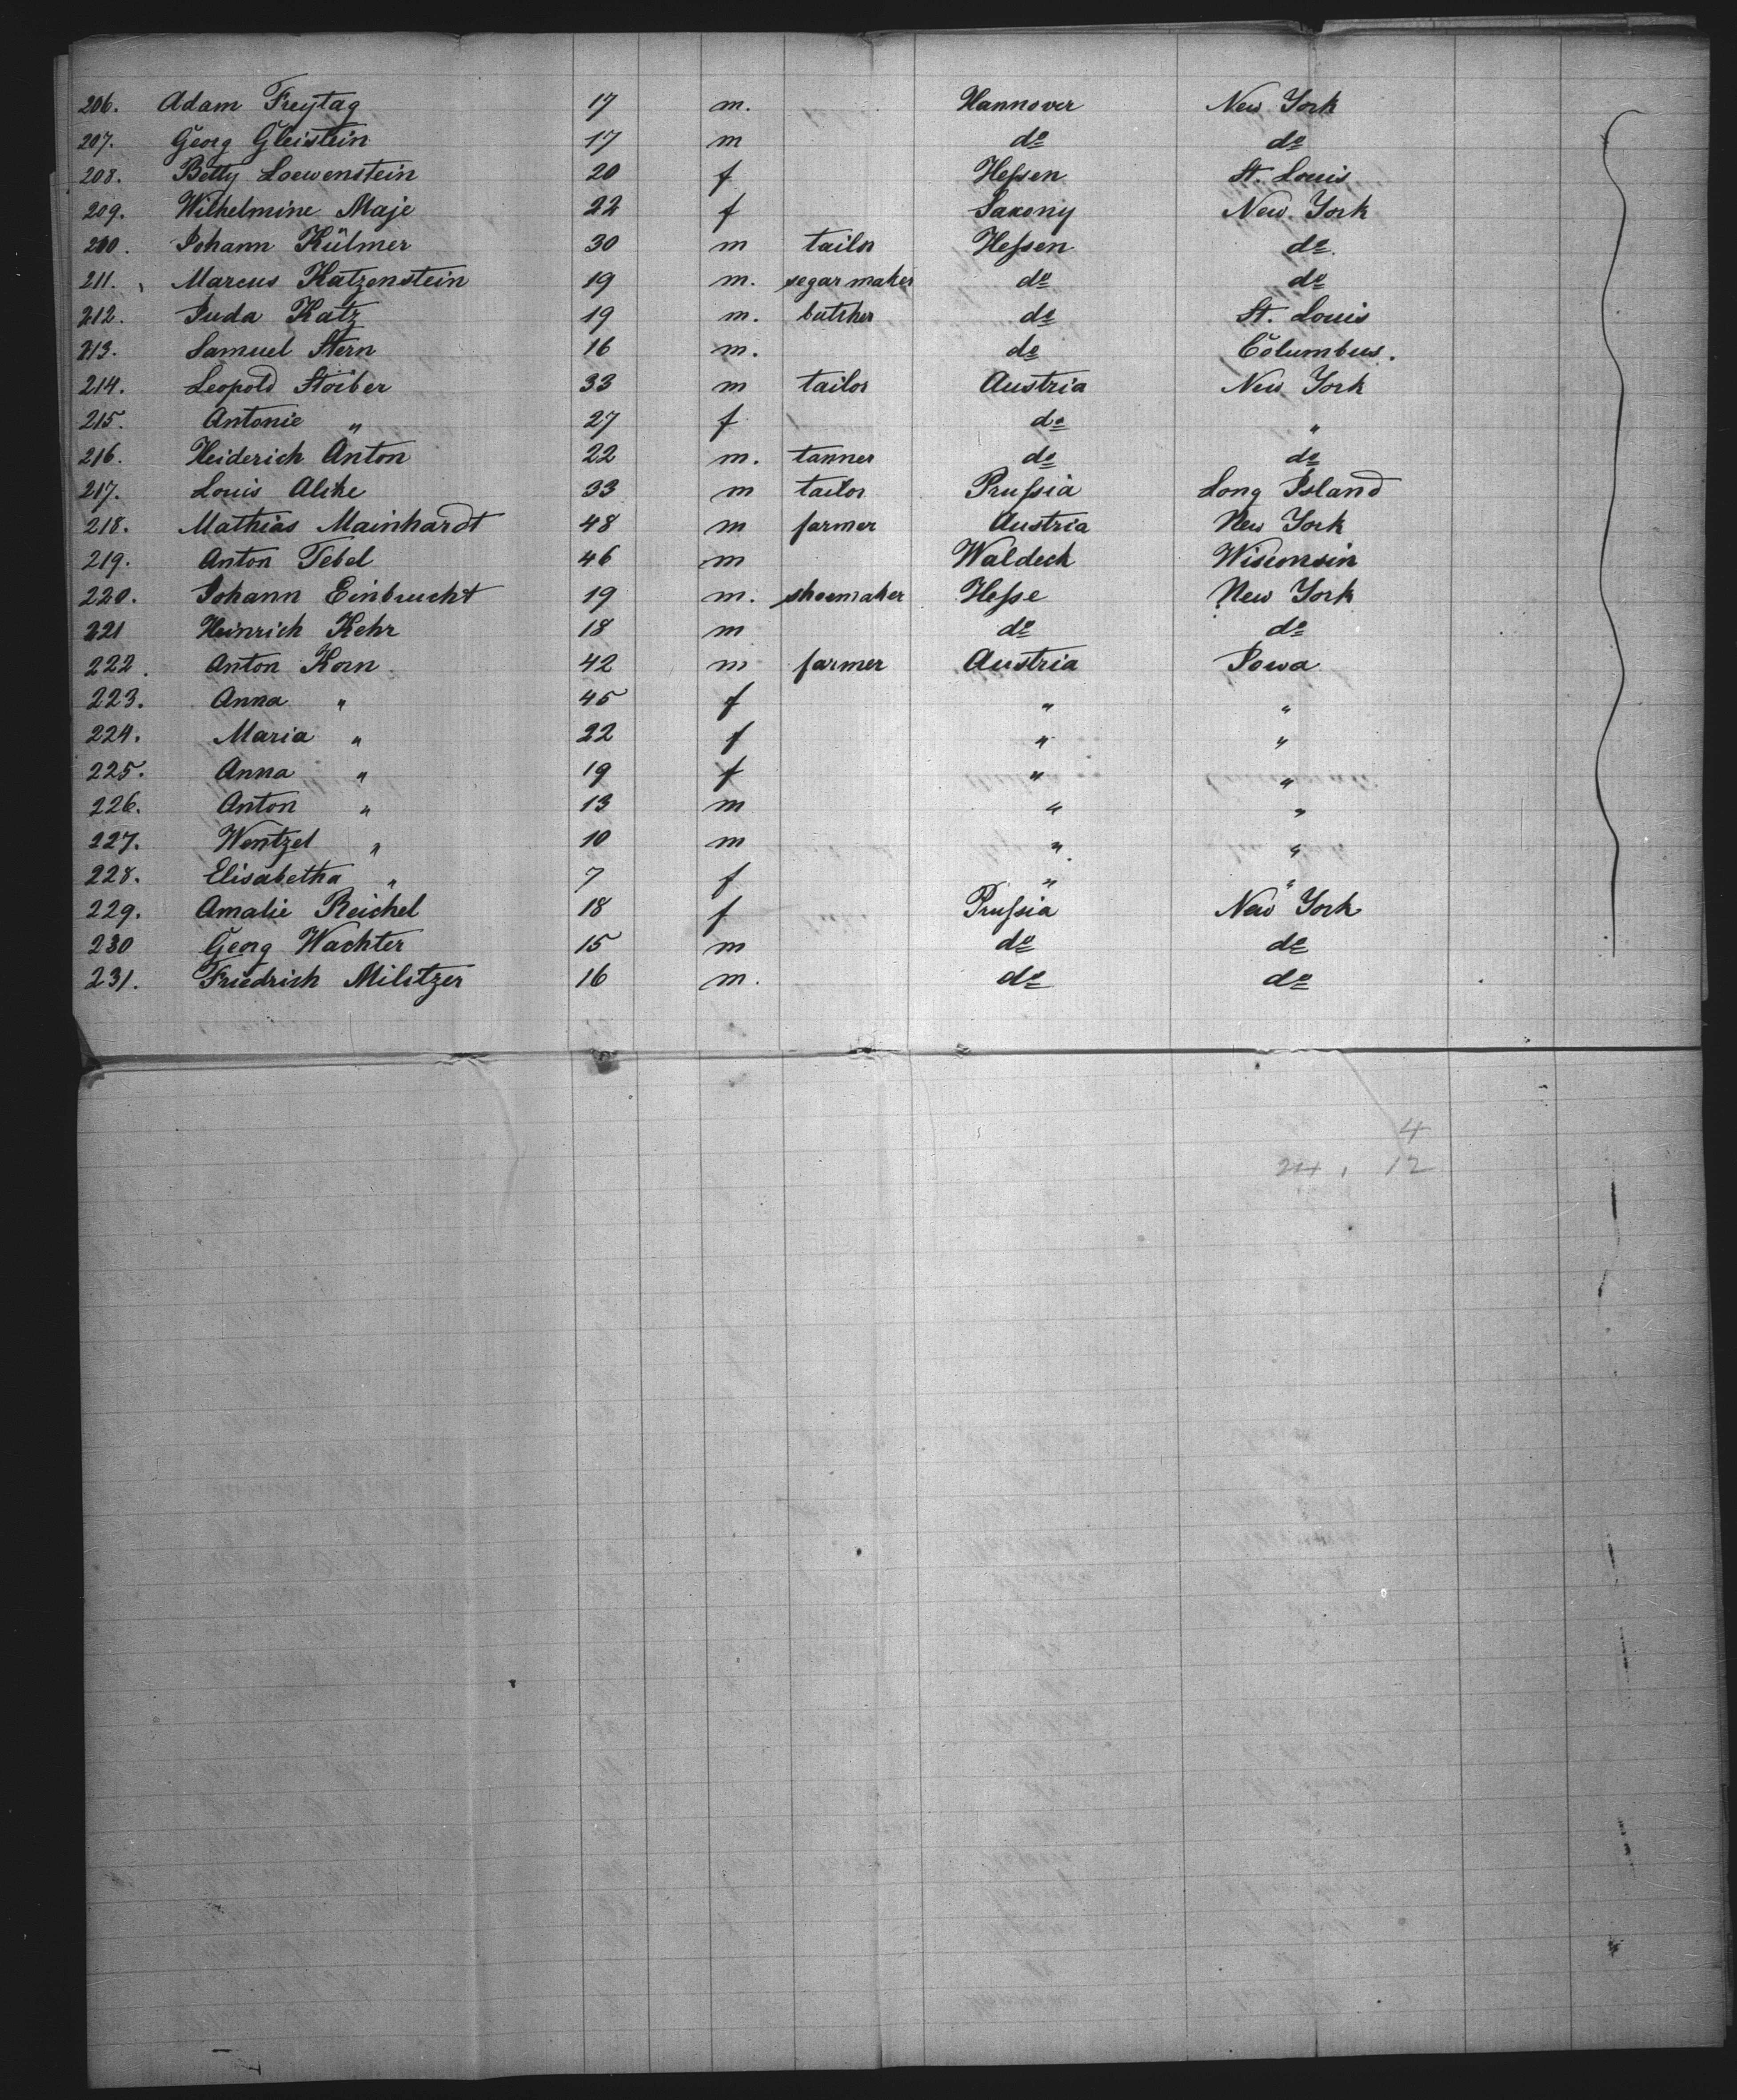 206. Adam Freytag 17 m. Hannover New York
207. Georg Gleistein 17 m do do
208. Betty Loewenstein 20 f Hessen St. Louis
209. Wilhelmine Maje 22 f Saxony New York
210. Johann Külmer 30 m tailor Hessen do.
211. Marcus Katzenstein 19 m. segar maker do do
212. Juda Katz 19 m. butcher do St. Louis
213. Samuel Stern 16 m. do Columbus.
214. Leopold Stoiber 33 m tailor Austria New York
215. Antonie " 27 f do "
216. Heiderich Anton 22 m. tanner do do
217. Louis Alike 33 m tailor Prussia Long Island
218. Mathias Mainhardt 48 m farmer Austria New York
219. Anton Tebel 46 m Waldeck Wisconsin
220. Johann Einbrucht 19 m. shoemaker Hesse New York
221 Heinrich Kehr 18 m do do
222. Anton Korn 42 m farmer Austria Iowa
223. Anna " 45 f " "
224. Maria " 22 f " "
225. Anna " 19 f " "
226. Anton " 13 m " "
227. Wentzel " 10 m " "
228. Elisabetha " 7 f " "
229. Amalie Reichel 18 f Prussia New York
230 Georg Wachter 15 m do do
231. Friedrich Militzer 16 m. do do
4
12